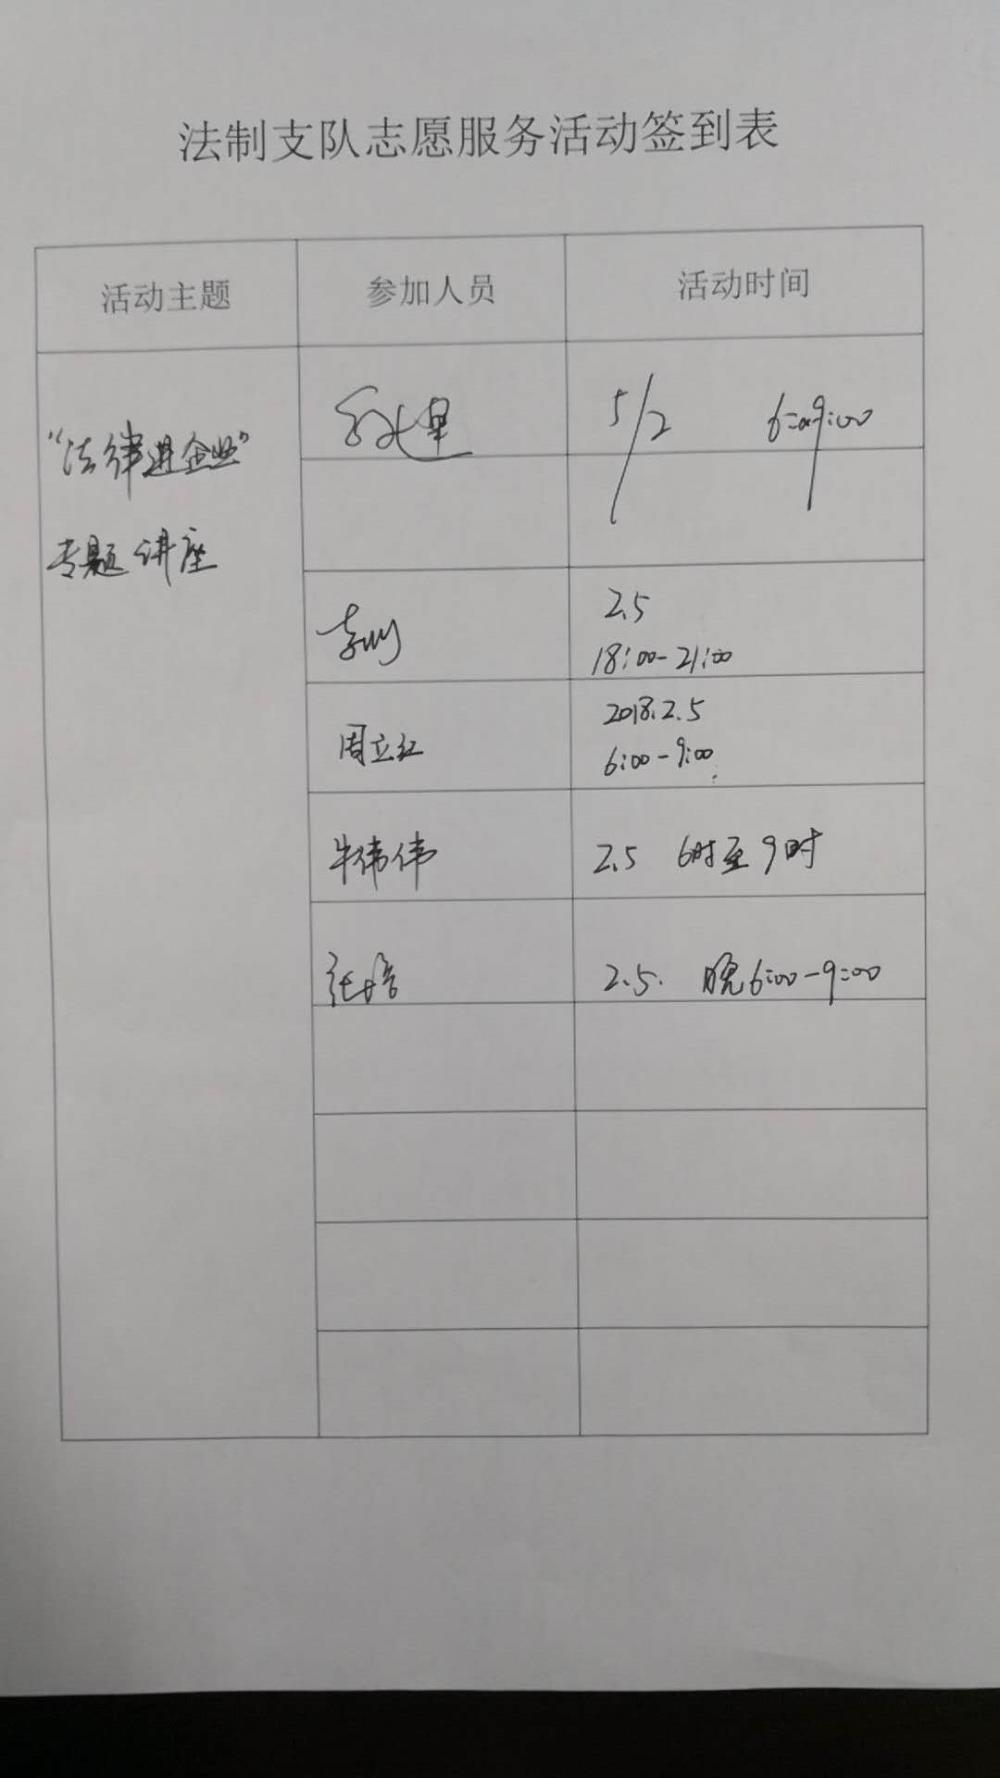 法制支队志愿服务活动签到表
活动主题 参加人员 活动时间
"法律进企业"
专题讲座
5/2 6:00 9:00
2.5
18:00-21:00
周立红
2018.2.5
6:00-9:00
牛伟伟 2.5 6时至9时
2.5. 晚6:00-9:00